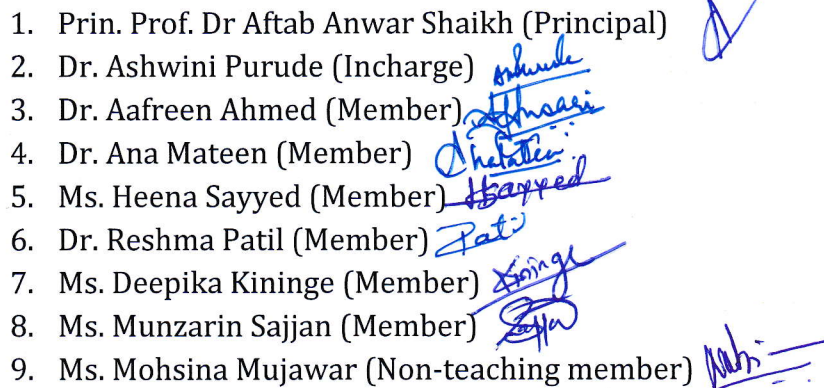 1. Prin. Prof. Dr Aftab Anwar Shaikh (Principal)
2. Dr. Ashwini Purude (Incharge)
3. Dr. Aafreen Ahmed (Member)
4. Dr. Ana Mateen (Member)
5. Ms. Heena Sayyed (Member) HSayyed
6. Dr. Reshma Patil (Member)
7. Ms. Deepika Kininge (Member) Kininge
8. Ms. Munzarin Sajjan (Member)
9. Ms. Mohsina Mujawar (Non-teaching member)